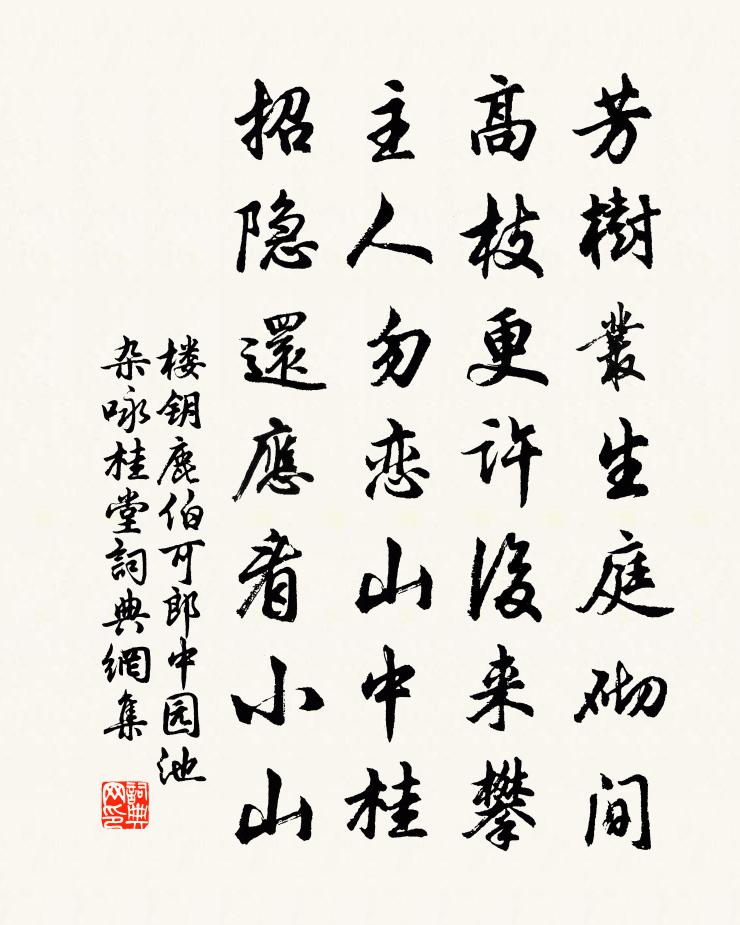 芳樹叢生庭砌间
高枝更许後来攀
主人勿恋山中桂
招隐還應看小山
楼钥鹿伯可郎中园池
杂咏桂堂詞典網集
詞典网印